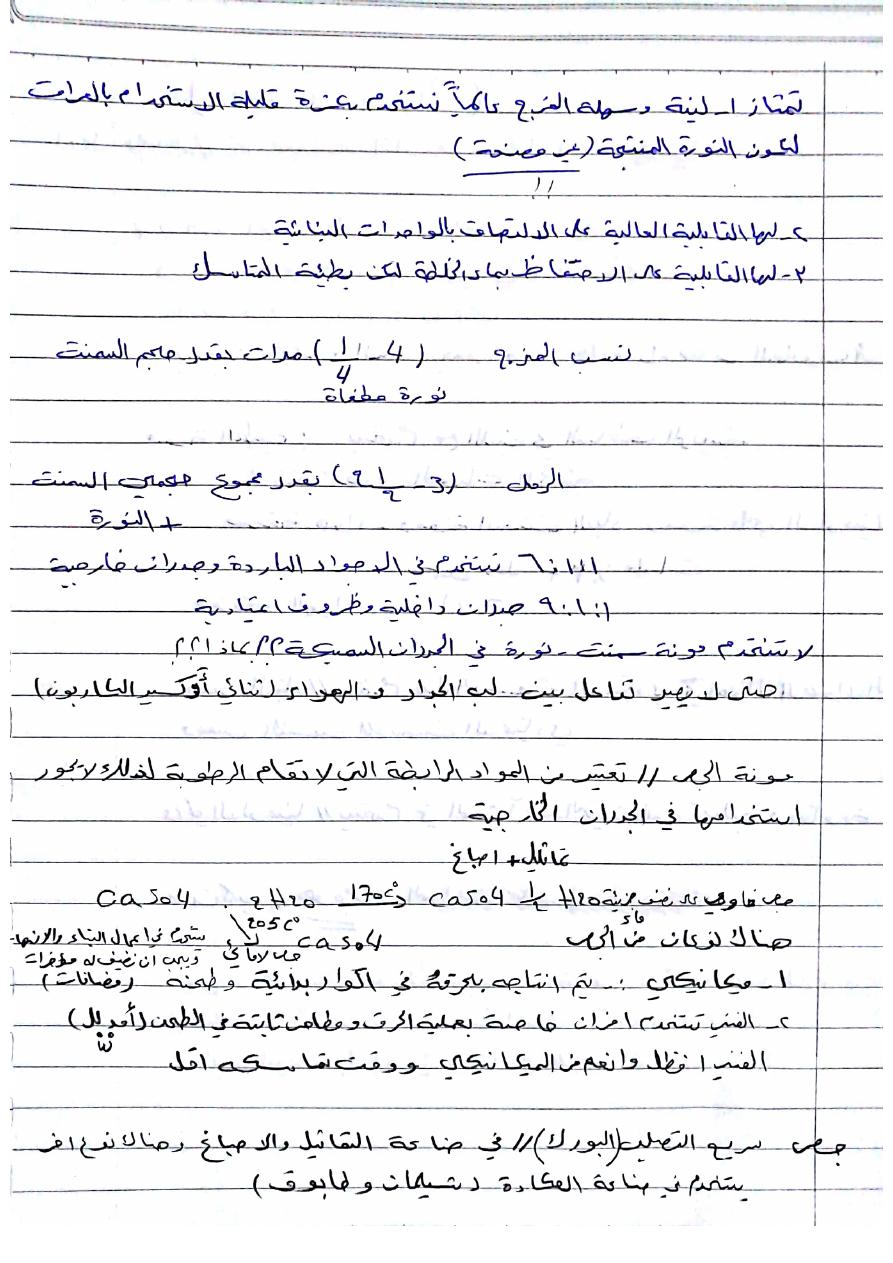 تمتاز ١- لينة وسهله المزج عالمياً تستخدم بكثرة قليلة الاستخدام بالعراق
لكون النورة المنتجة (غير مصنعة)
٢- لها القابلية العالية على الالتصاق بالواحدات البنائية
٣- لها القابلية على الاحتفاظ بماء الخلطة لكن بطيئة التماسك
نسب المزج (4 - 1/4) مرات بقدر حجم السمنت
نورة مطفأة
الرمل (3 - 2 1/2) بقدر مجموع حجمي السمنت
+ النورة
٦:١:١ تستخدم في الاجواء الباردة وجدران خارجية
٩:٢:١ جدران داخلية وظروف اعتيادية
لا تستخدم مونة سمنت - نورة في الجدران السميكة ؟؟ لماذا ؟؟؟
حتى لا يصير تفاعل بين لب الجدار و الهواء (ثنائي أوكسيد الكاربون)
مونة الجص // تعتبر من المواد الرابطة التي لا تقاوم الرطوبة لذلك لا يجوز
استخدامها في الجدران الخارجية
تماثيل + اصباغ
CaSO4 . 2H2O 170C° CaSO4 1/2 H2O جص حاوي على نصف جزيئة
ماء
205C° CaSO4 هناك نوعان من الجص
جص لامائي يستخدم في اعمال البناء والانهاء
ويجب ان نضيف له مؤخرات
١- ميكانيكي :- يتم انتاجه بحرقه في اكوار بدائية وطحنه (رمضانات)
٢- الفني تستخدم افران خاصة بعملية الحرق ومطاحن ثابتة في الطحن
الفني افظل وانعم من الميكانيكي ووقت تماسكه اقل
جص سريع التصلب (البورك) // في صناعة التماثيل والاصباغ وهناك نوع اخر
يستخدم في صناعة العكادة (شيلمان وطابوق)